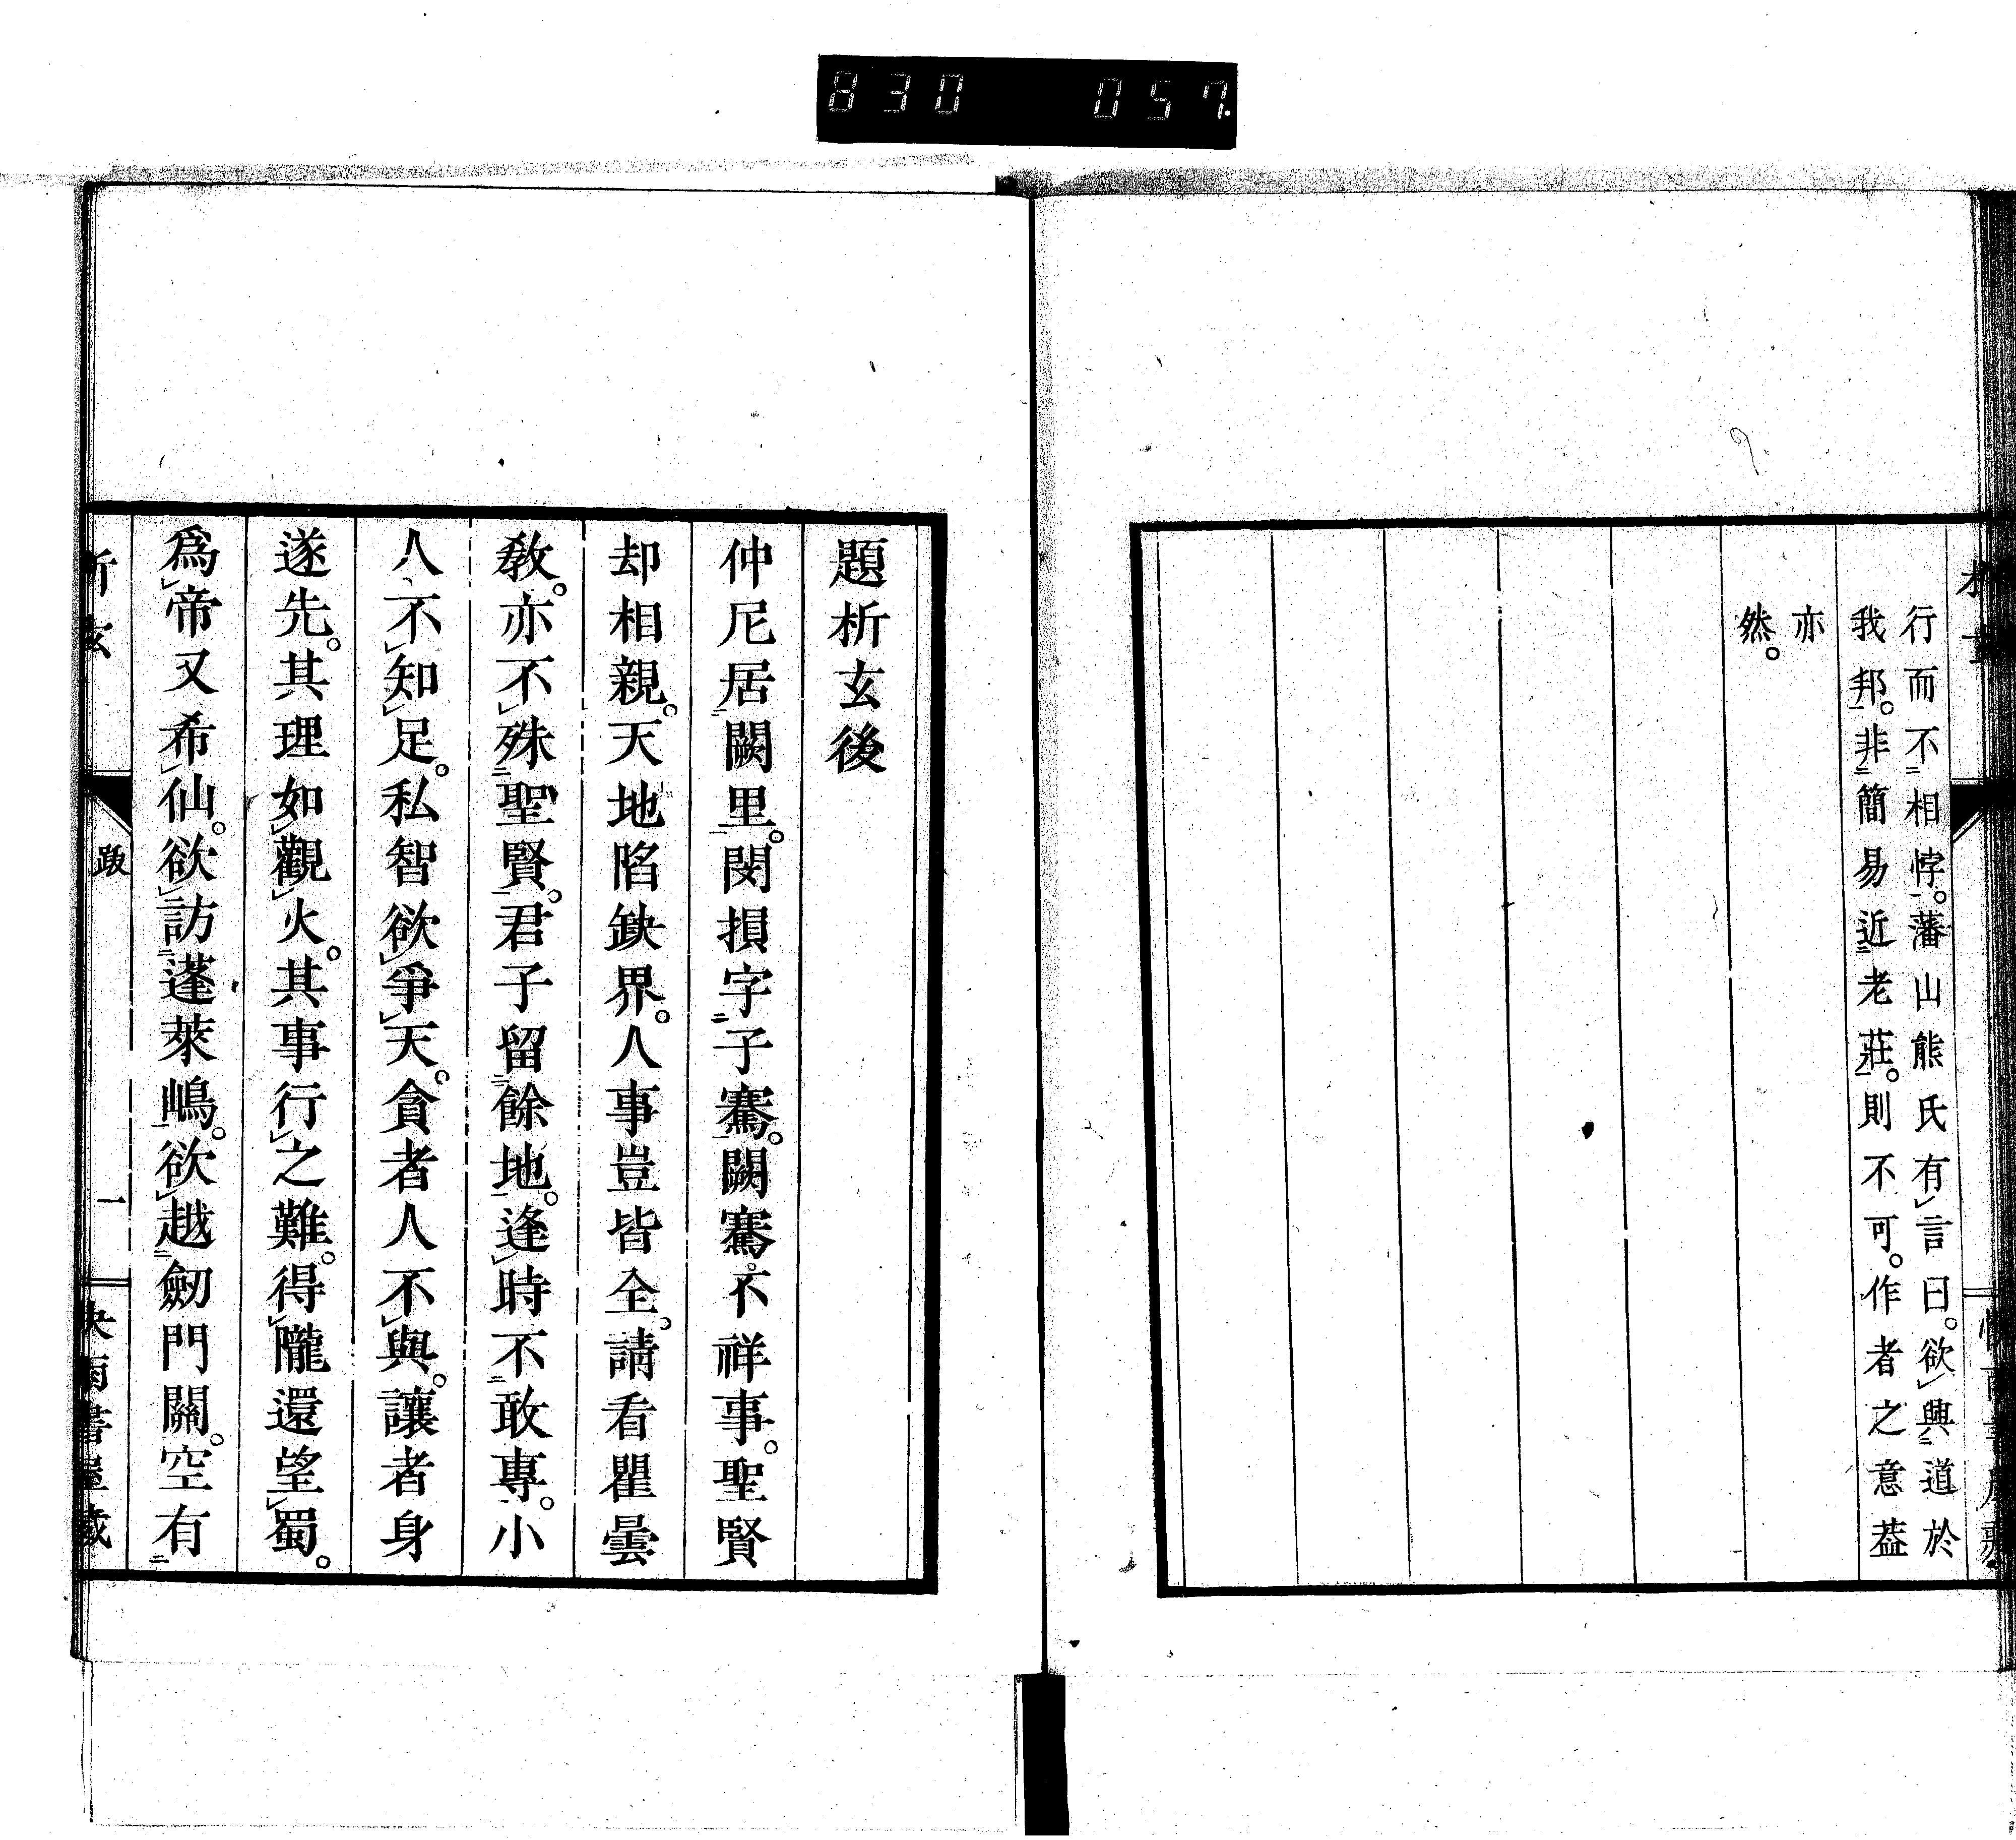 830 057.
行而不相悖。藩山熊氏有言曰。欲興道於
我邦。非簡易近老莊。則不可。作者之意葢
亦
然。
題析玄後
仲尼居闕里。閔損字子騫。闕騫不祥事。聖賢
却相親。天地陷缺界。人事豈皆全。請看瞿曇
教。亦不殊聖賢。君子留餘地。逢時不敢專。小
人不知足。私智欲爭天。貪者人不與。讓者身
遂先。其理如觀火。其事行之難。得隴還望蜀。
爲帝又希仙。欲訪蓬萊嶋。欲越劒門關。空有
析玄
跋
一
快雨書屋藏